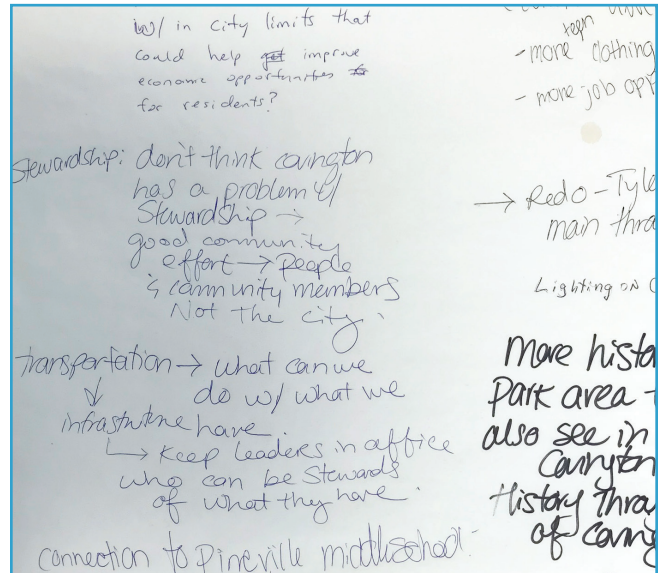 w/ in city limits that
could help get improve
economic opportunities to
for residents?
Stewardship: don't think covington
has a problem w/
Stewardship →
good community
effort → People
& community members
Not the city.
transportation → what can we
do w/ what we
infrastruture have.
↳ Keep leaders in office
who can be Stewards
of what they have.
connection to Pineville middleschool.
teen
- more clothing
- more job opp
→ Redo - Tyle
main thro
Lighting on C
More histo
Park area -
also see in
Covington
History thro
of coving